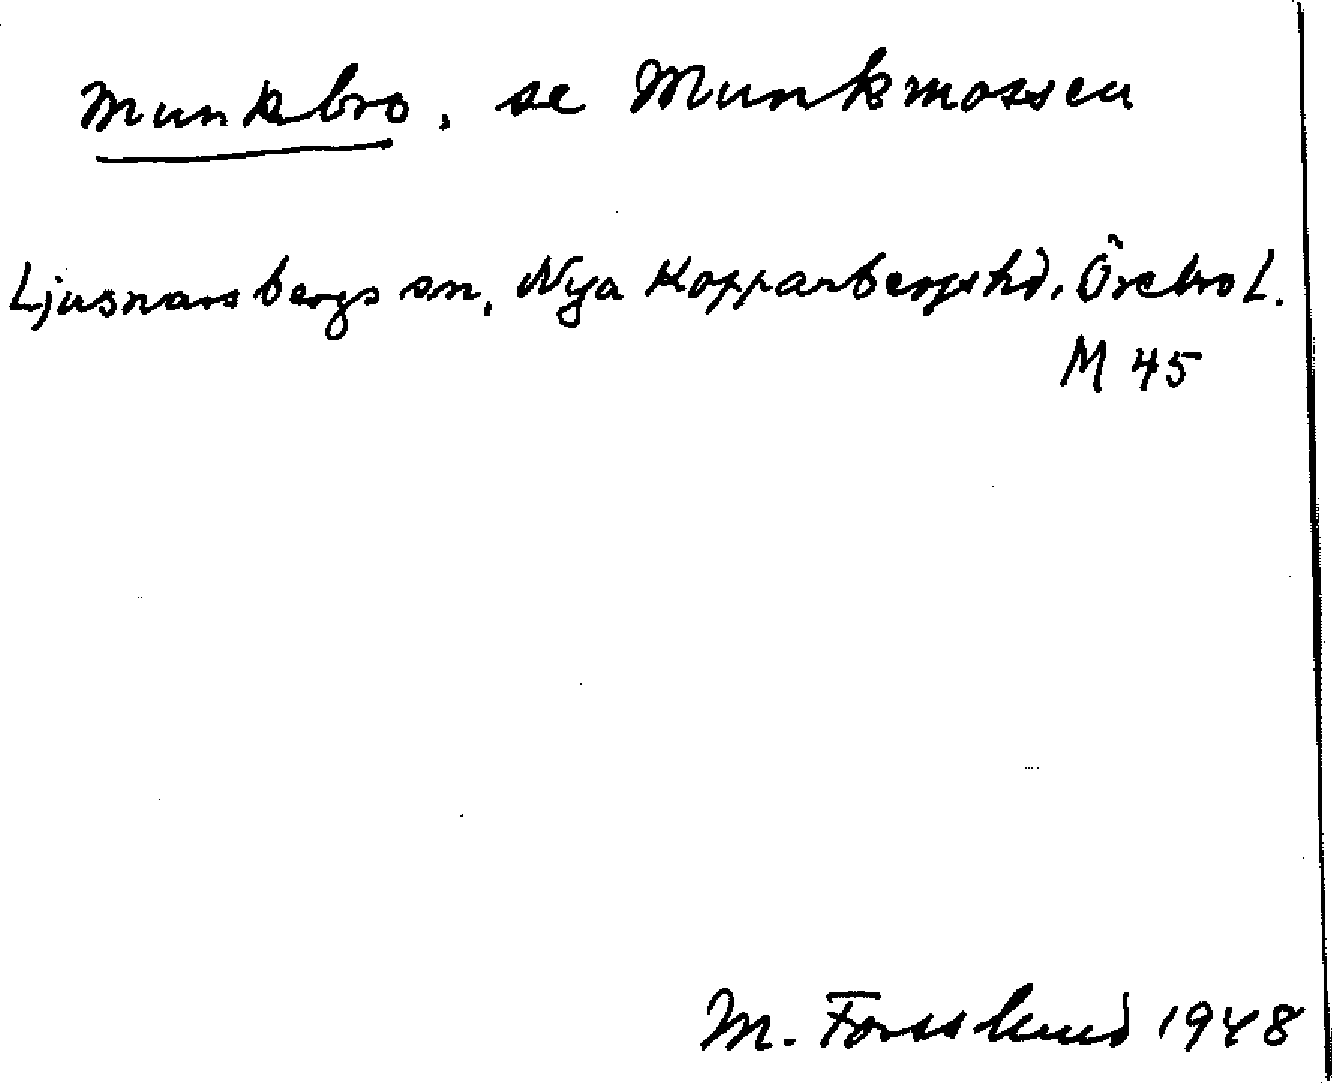 Munkbro, se Munkmossen
Ljusnarsbergs sn, Nya Kopparbergs hd, Örebro l.
M 45
M. Forsslund 1948